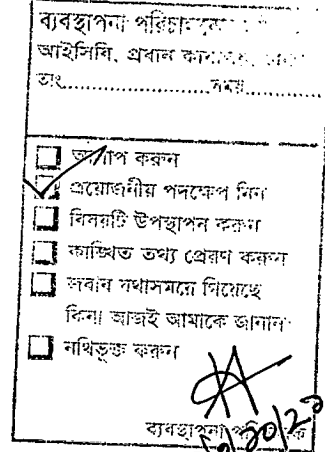 ব্যবস্থাপনা পরিচালকের
আইসিবি, প্রধান কার্যালয়,
তাং....................সময়..............
আলাপ করুন
প্রয়োজনীয় পদক্ষেপ নিন
বিষয়টি উপস্থাপন করুন
কাঙ্খিত তথ্য প্রেরণ করুন
জবাব যথাসময়ে গিয়েছে
কিনা আজই আমাকে জানান
নথিভুক্ত করুন
ব্যবস্থাপনা পরিচালক